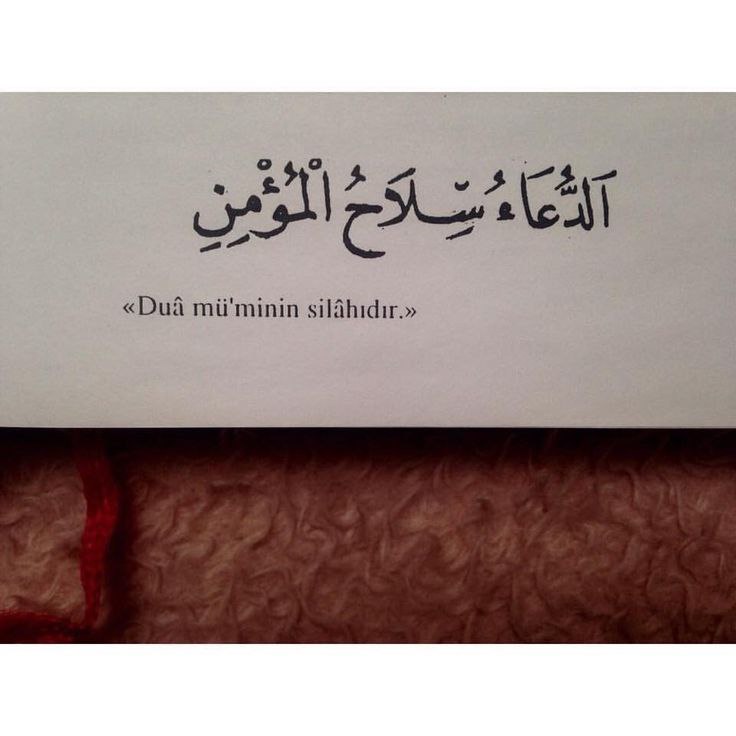 اَلدُّعَاءُ سِّلَاحُ الْمُؤْمِنِ
«Duâ mü'minin silâhıdır.»